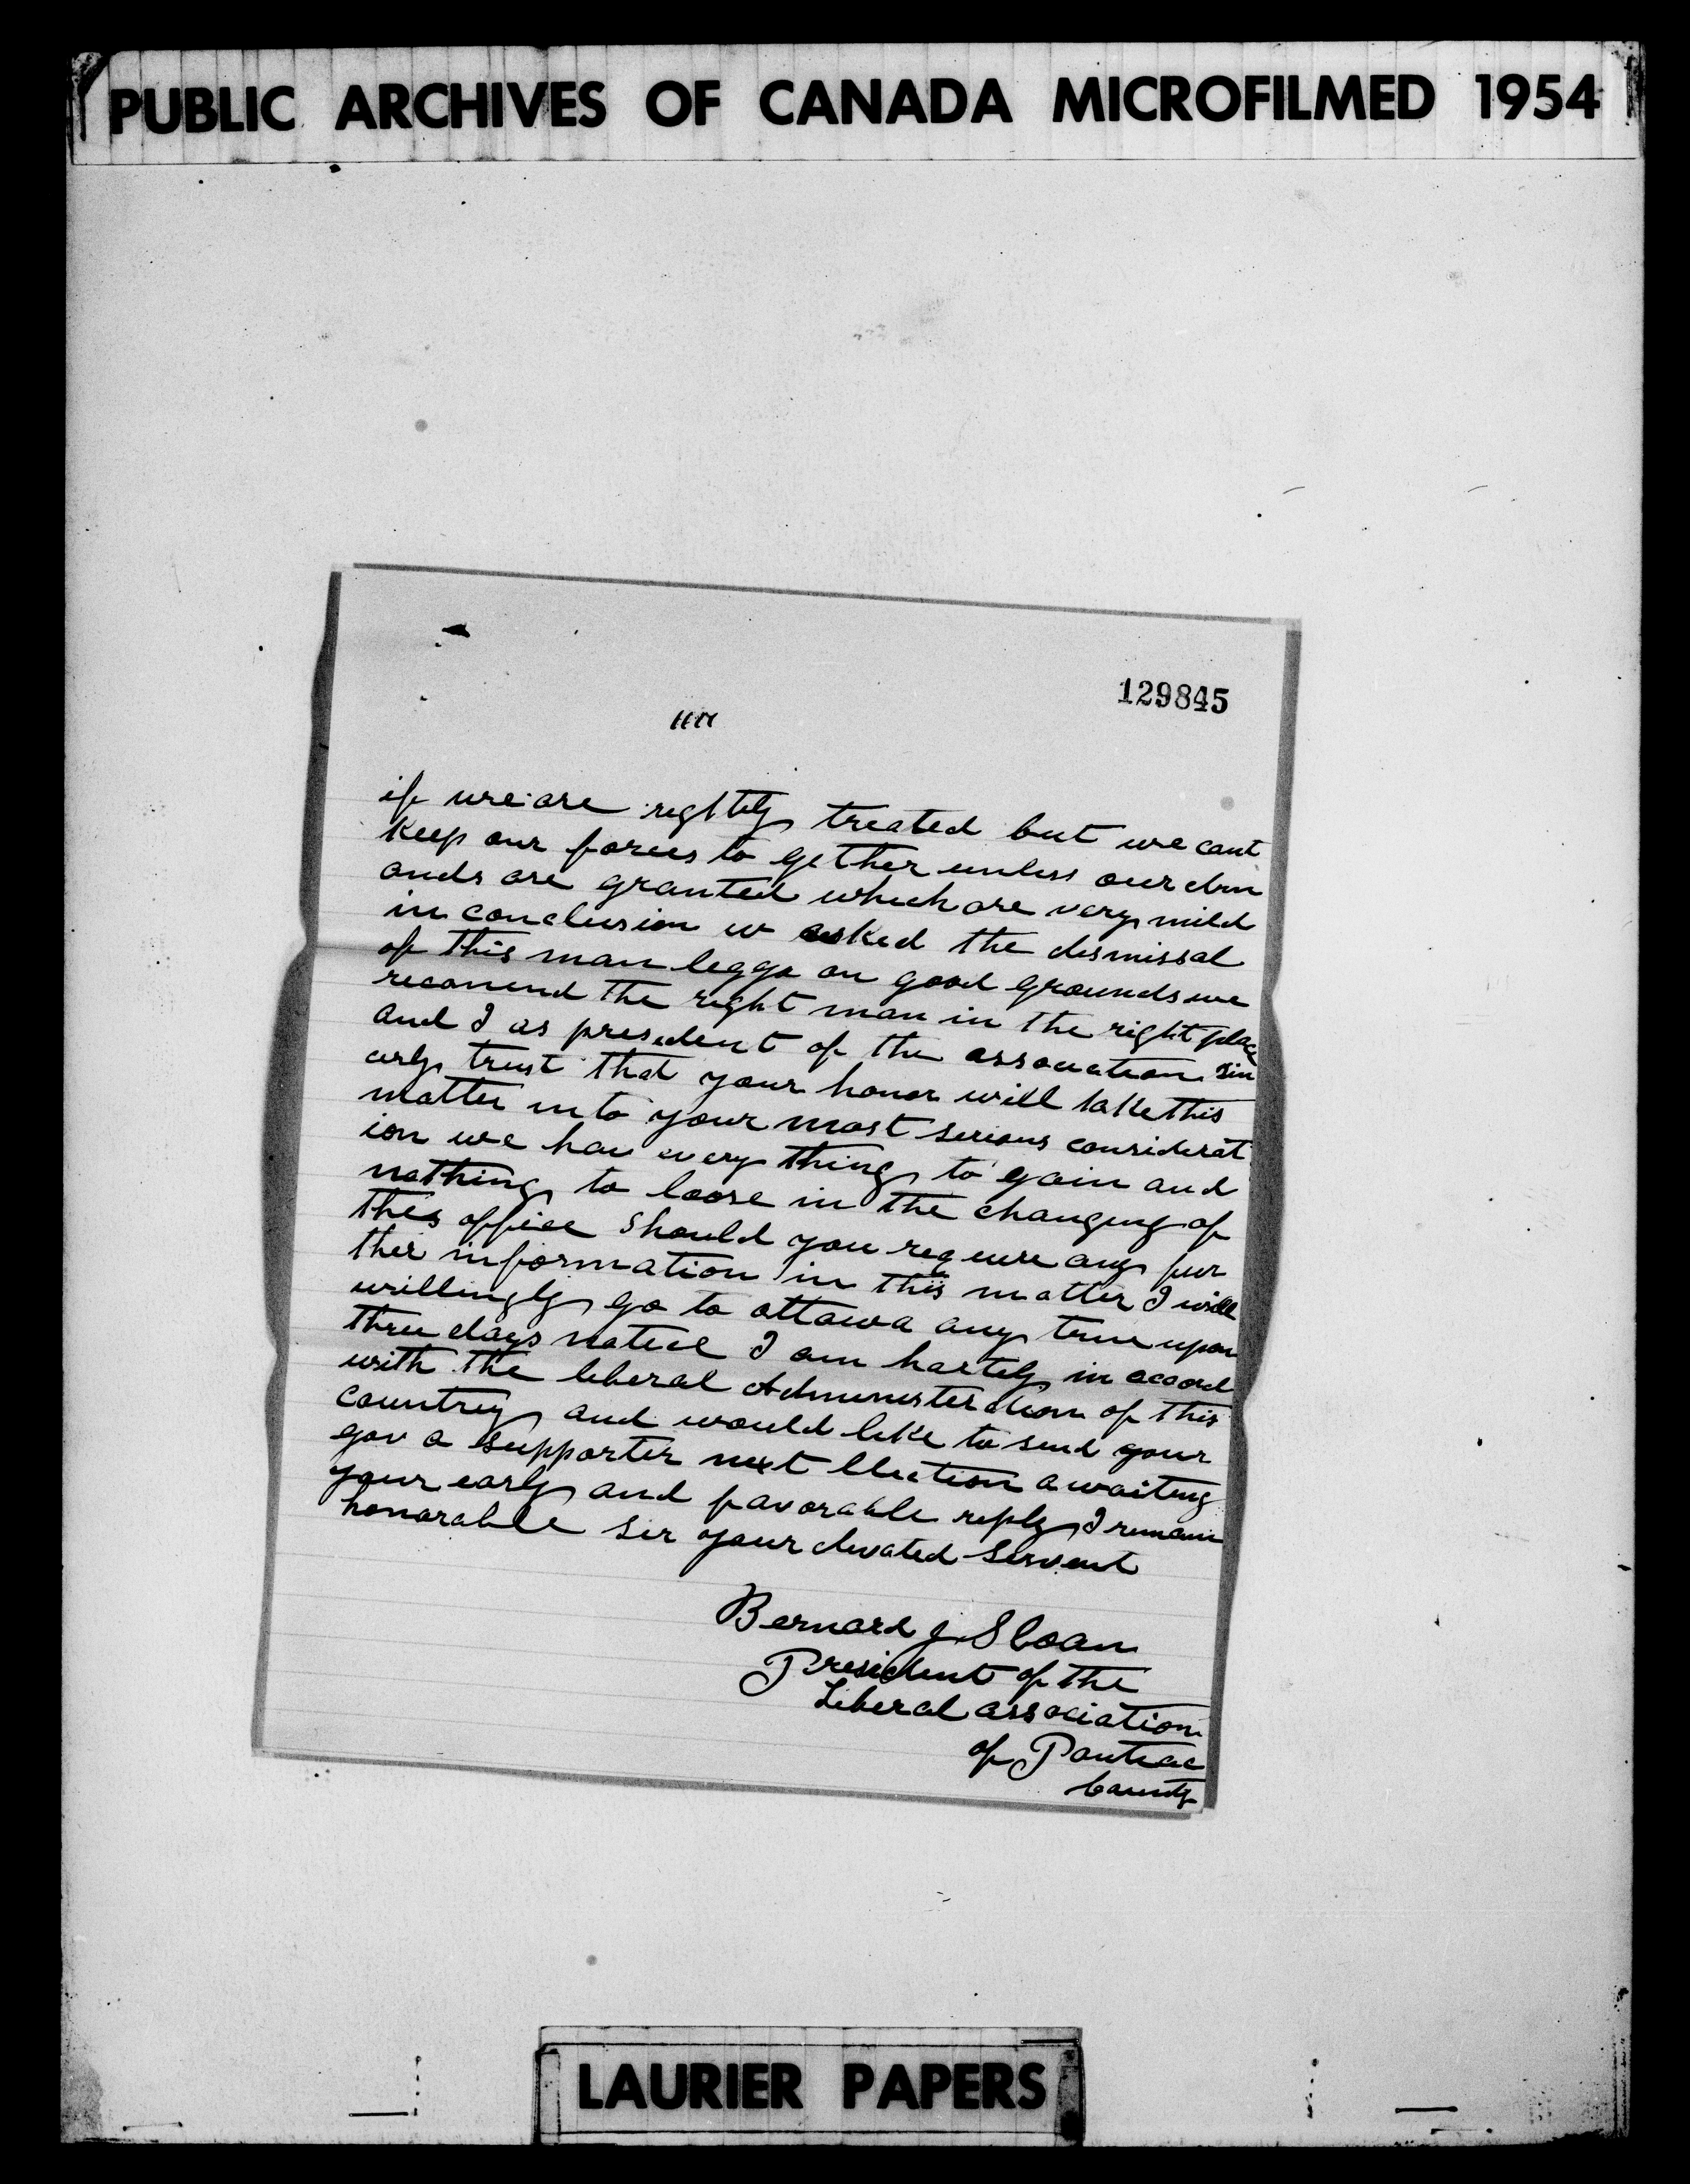 PUBLIC ARCHIVES OF CANADA MICROFILMED 1954
129845
if we are rightly treated but we cant
keep our forces to gether unless our dem
ands are granted which are very mild
in conclusion w asked the dismissal
of this man leggo on good grounds we
recomend the right man in the right place
and I as president of the association sin
erly trust that your honor will take this
matter into your most serious considerat
ion we hav every thing to gain and
nothing to loose in the changing of
this office should you require any fur
ther information in this matter I will
willingly go to ottawa any time upon
three days notice I am hartely in accord
with the liberal Administeration of this
country and would like to send your
gov a supporter next election awaiting
your early and favorable reply I remain
honorable sir your devoted servent
Bernard J. Sloan
President of the
Liberal association
of Pontiac
County
LAURIER PAPERS